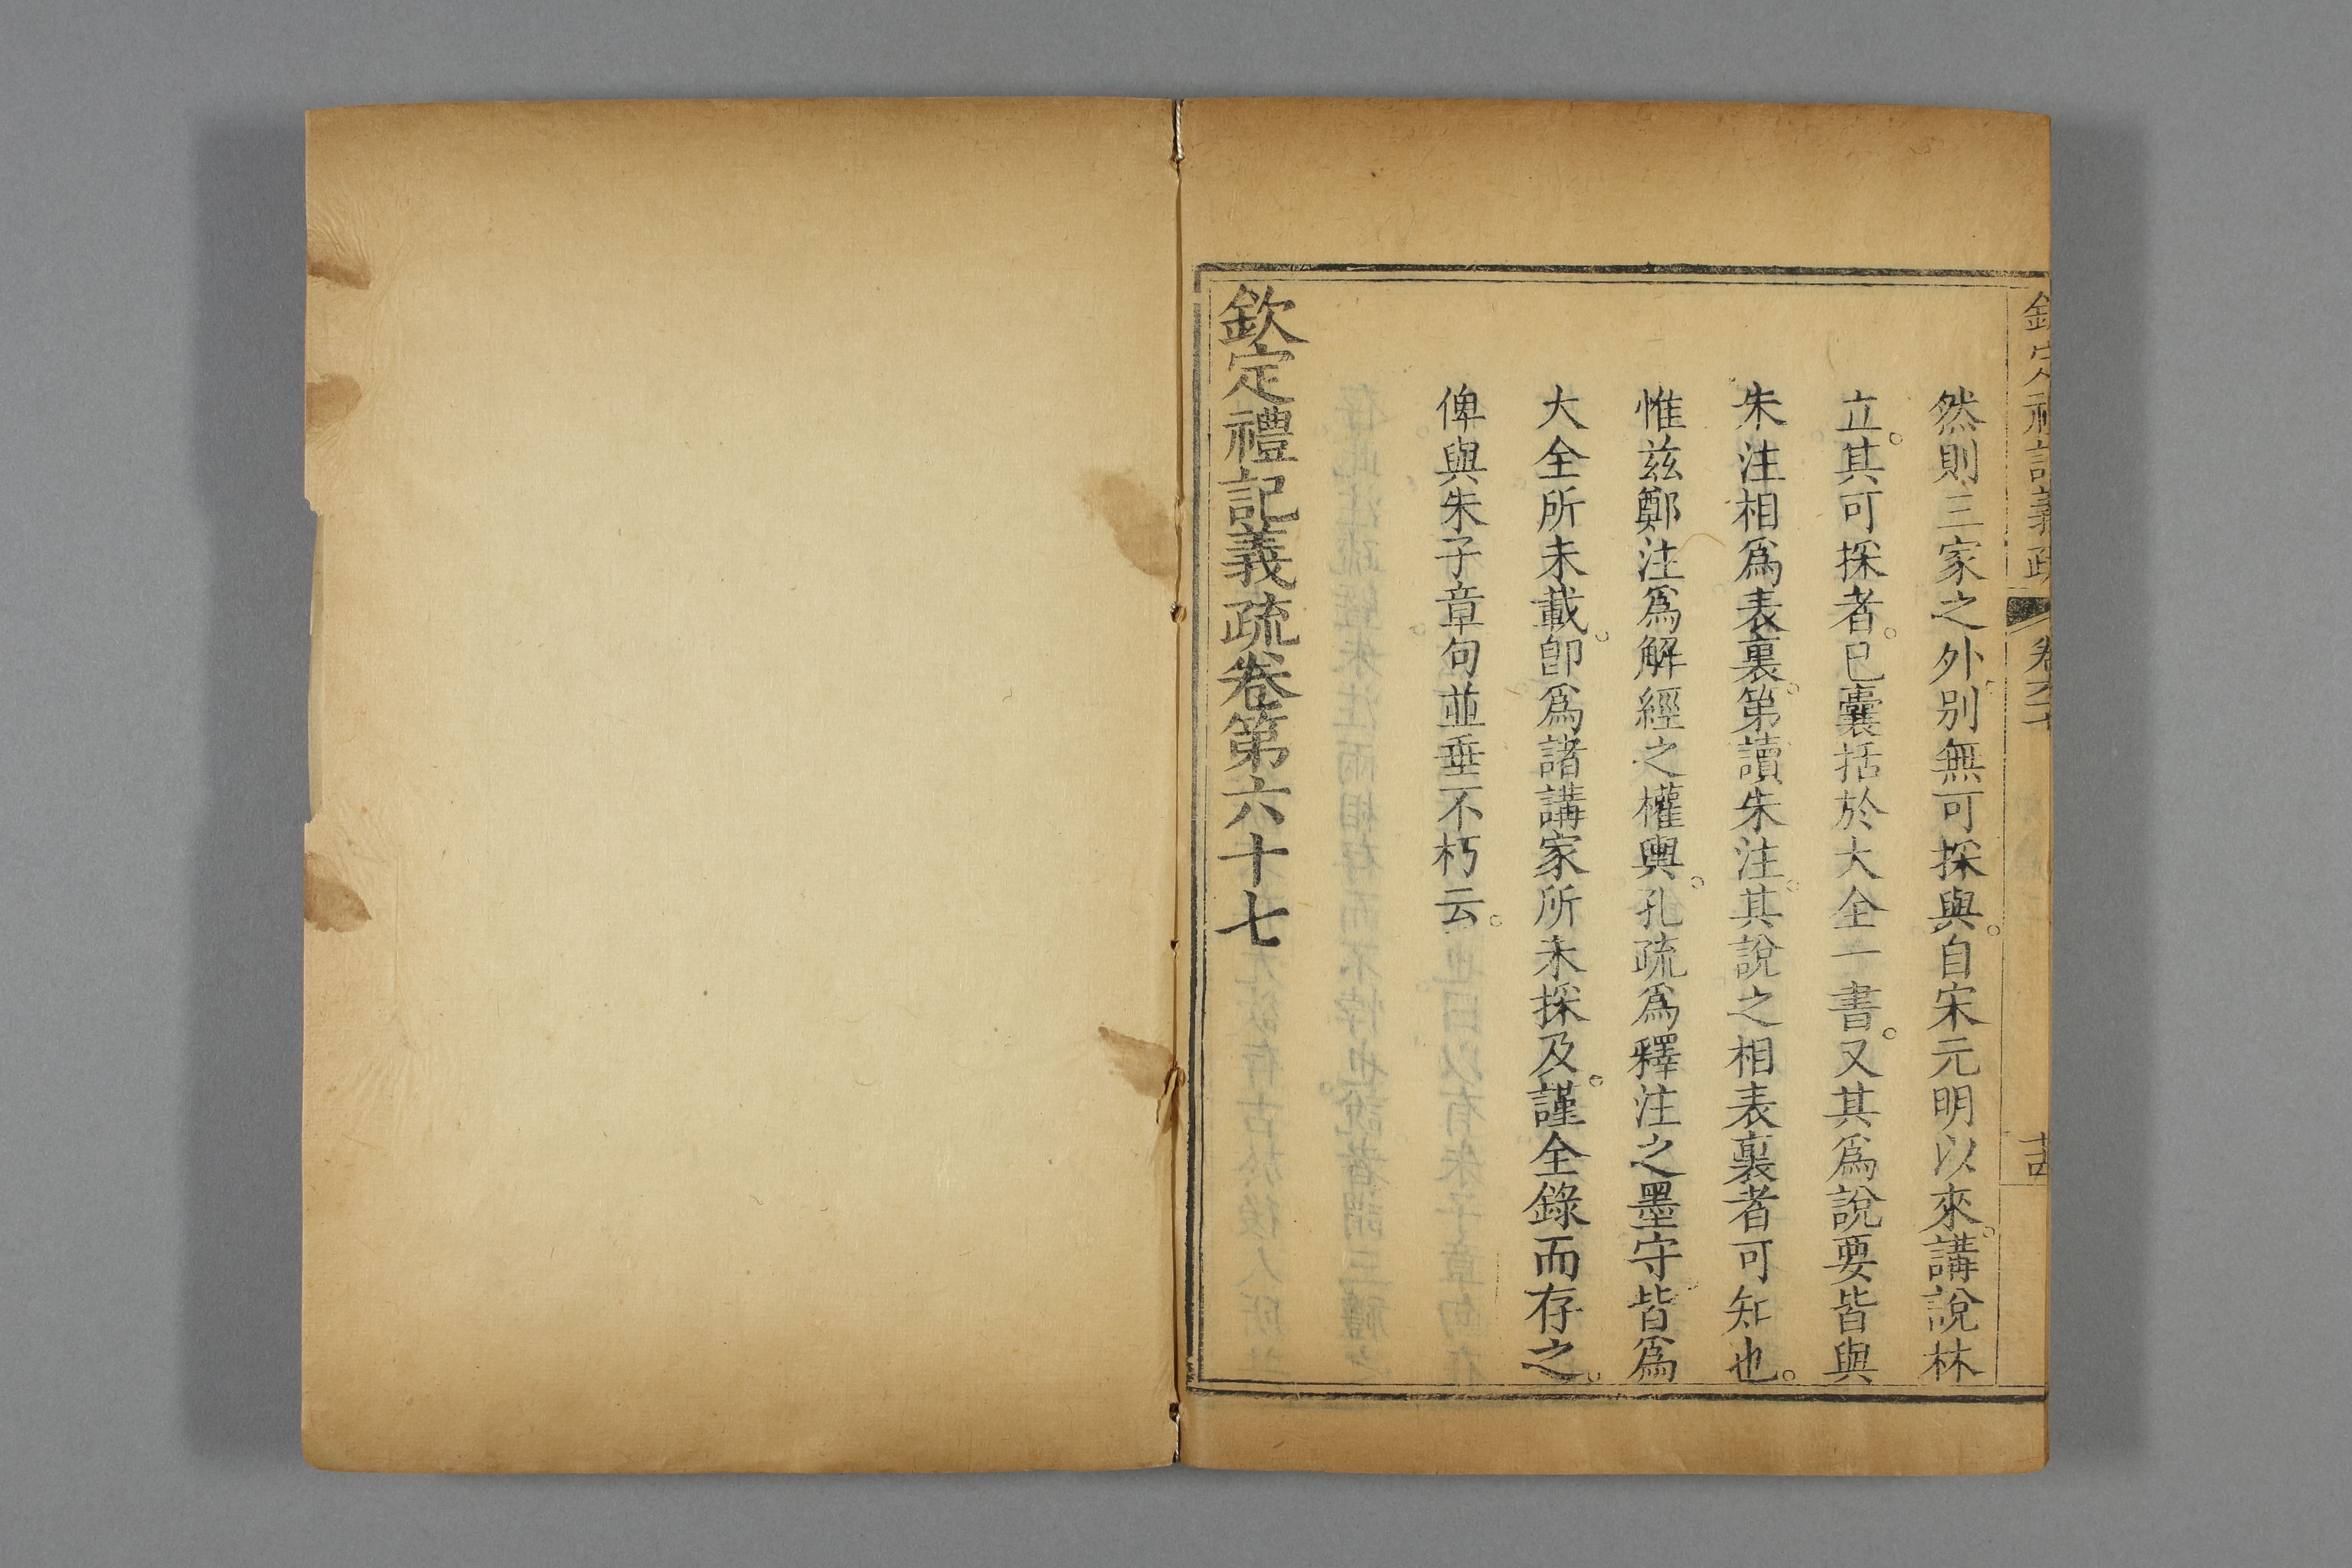 然則三家之外別無可採與。自宋元明以來。講說林
立。其可採者。已囊括於大全一書。又其爲說要皆與
朱注相爲表裏。第讀朱注。其說之相表裏者可知也。
惟兹鄭注爲解經之權輿。孔疏爲釋注之墨守皆爲
大全所未載。卽爲諸講家所未採及。謹全錄而存之。
俾與朱子章句並垂不朽云。
欽定禮記義疏卷第六十七